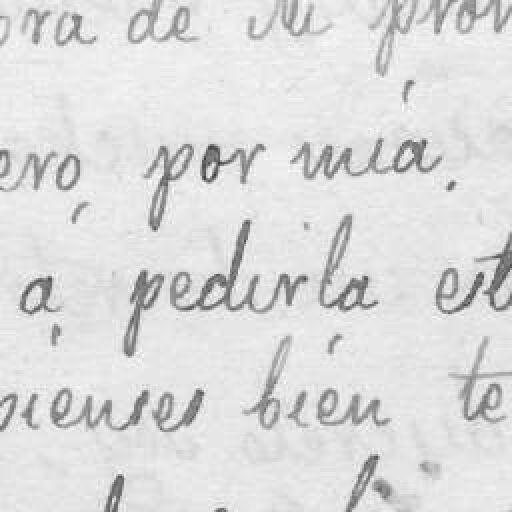 ora de su pron
ero, por mía.
a pedirla est
pienses bién te